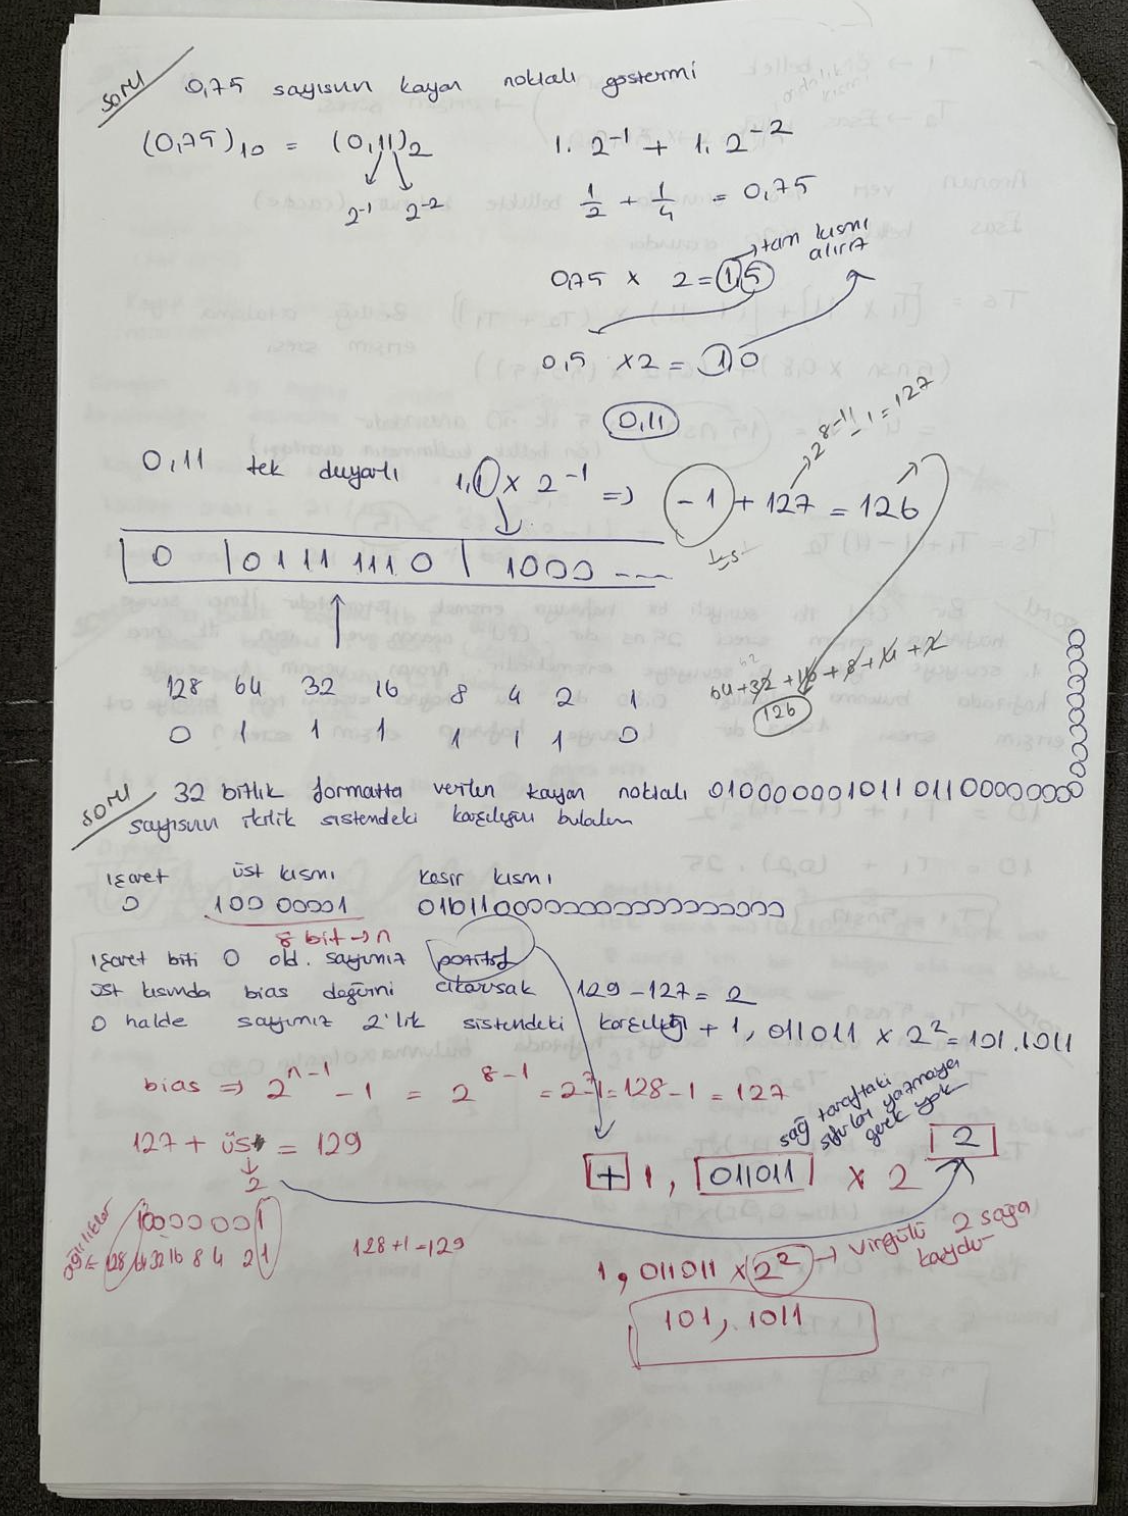 soru 0,75 sayısın kayan noktalı göstermi
(0,75)10 = (0,11)2 1. 2^-1 + 1. 2^-2
2^-1 2^-2 1/2 + 1/4 = 0,75
→ tam kısmı alırız
0,75 x 2 = 1,5
0,5 x2 = 1,0
0,11
0,11 tek duyarlı 1,1 x 2^-1 => -1 + 127 = 126
→ 2^8-1 - 1 = 127
üst
0 | 01111110 | 1000 ---
64+32+16+8+4+2
62
126
128 64 32 16 8 4 2 1
0 1 1 1 1 1 1 0
soru 32 bitlik formatta verilen kayan noktalı 01000000101101100000000
sayısının ikilik sistemdeki karşılığını bulalım
işaret üst kısmı kesir kısmı
0 10000001 01101100000000000000000
8 bit → n
işaret biti 0 old. sayımız pozitif
üst kısımda bias değerini çıkarırsak 129 - 127 = 2
O halde sayımız 2'lik sistemdeki karşılığı + 1, 011011 x 2^2 = 101.1011
bias => 2^n-1 - 1 = 2^8-1 = 2^7-1 = 128 - 1 = 127
sağ taraftaki sıfırları yazmaya gerek yok
127 + üst = 129
2
+ 1, 011011 x 2^2
ağırlıklar 10000001
128 64 32 16 8 4 2 1
128+1=129
1, 011011 x 2^2 → virgülü 2 sağa kaydır
101, 1011